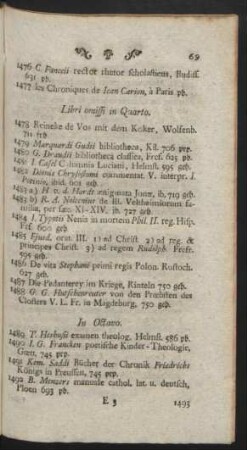 69
1476 C. Funccii rector rhetor scholasticus, Budiss.
631 pb.
1477 les Chroniques de Iean Carion, à Paris pb.
Libri omissi in Quarto.
1478 Reineke de Vos mit dem Koker, Wolfenb.
711 frb
1479 Marquardi Gudii bibliotheca, Kil. 706 prp.
1480 G. Draudii bibliotheca classica, Frcf. 625 pb.
1481 I. Caselii omnia Luciani, Helmst. 595 geb.
1482 Dionis Chrysostomi commentat. V. interpr. I.
ibid. 601 geb.
1483 a) H. v. d. Hardt aenigmata Ionae, ib. 719 geb.
b) R. A. Noltenius de Ill. Veltheimiorum familia,
per saec. XI-XIV, ib. 727 geb.
1484 I. Typotii Nenia in mortem Phil. II. reg. Hisp.
Frf. 600 geb
1485 Ejusd. orat. III. 1) ad Christ 2) ad reg. &
principes Christ. 3) ad regem Rudolph. Frcfr.
595 geb.
1486 De vita Stephani primi regis Polon. Rostoch.
627 geb.
1487 Die Padanterey im Kriege, Rinteln 750 geb
1488 von den Pröbsten des
Closters V. L. Fr. in Magdeburg, 750 geb
In Octavo.
1489 T. Heshusii examen theolog. Helmst. 586 pb.
1490 I. G. Francken poetische Kinder-Theologie,
Goett, 745 prp.
1491 Kem. Saddi Bücher der Chronik Friedrichs
Königs in Preussen, 745 prp.
1492 B. Menzers manuale cathol. lat. u. deutsch,
Ploen 693 pb.
E 3
1493